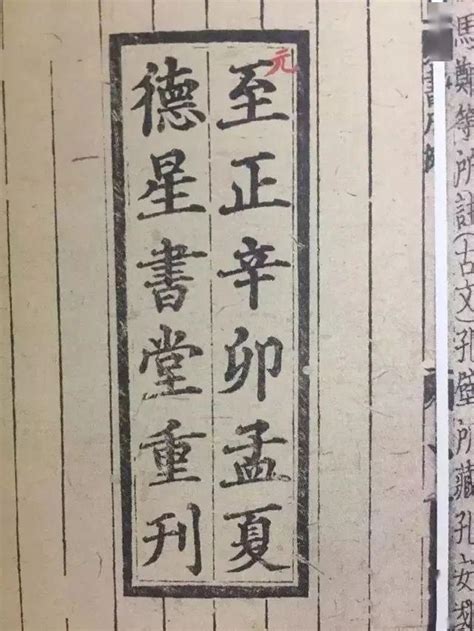 元
至正辛卯孟夏
德星書堂重刊
馬鄭等所註(古文)孔壁所藏孔安